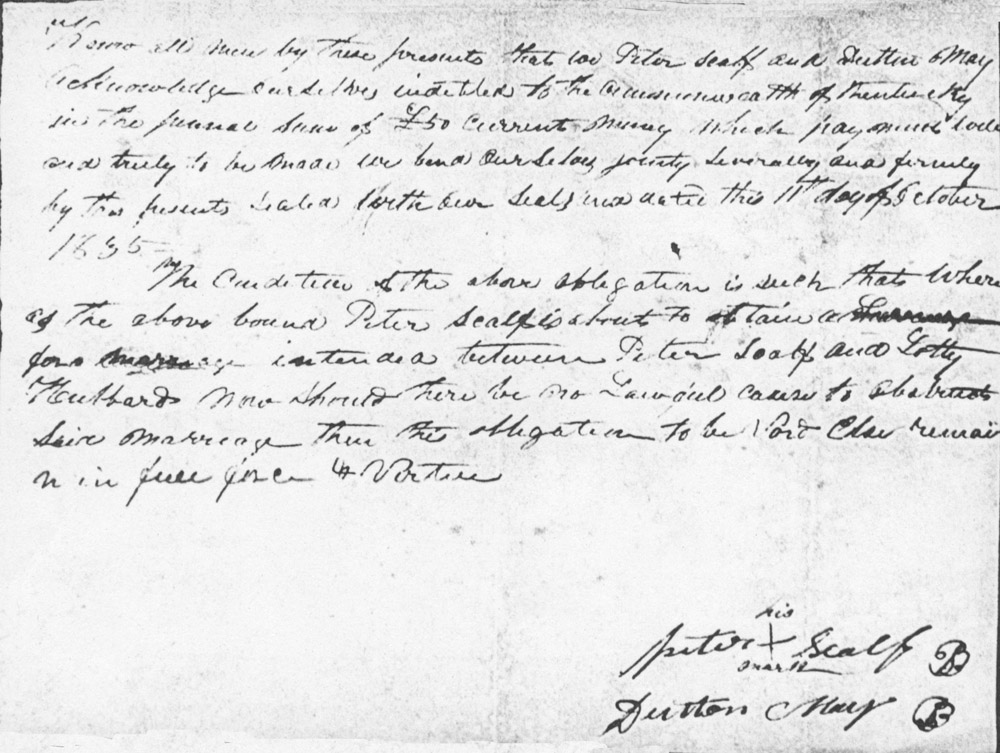 Know all men by these presents that we Peter Scalf and Dutton May
Acknowledge ourselves indebted to the Commonwealth of Kentucky
in the penal Sum of £50 Current Money which payment well
and truly to be Made we bind Ourselves jointly Severally and firmly
by these presents Sealed with our Seals and dated this 11th day of October
1835
The Condition of the above obligation is such that Where
as the above bound Peter Scalf is about to obtain a
for a marriage intended between Peter Scalf and Lotty
Hubbard Now Should there be no Lawful cause to obstruct
Said Marriage then this obligation to be Void Else remai
n in full force & Virtue
his
Peter X Scalf
mark
Dutton May